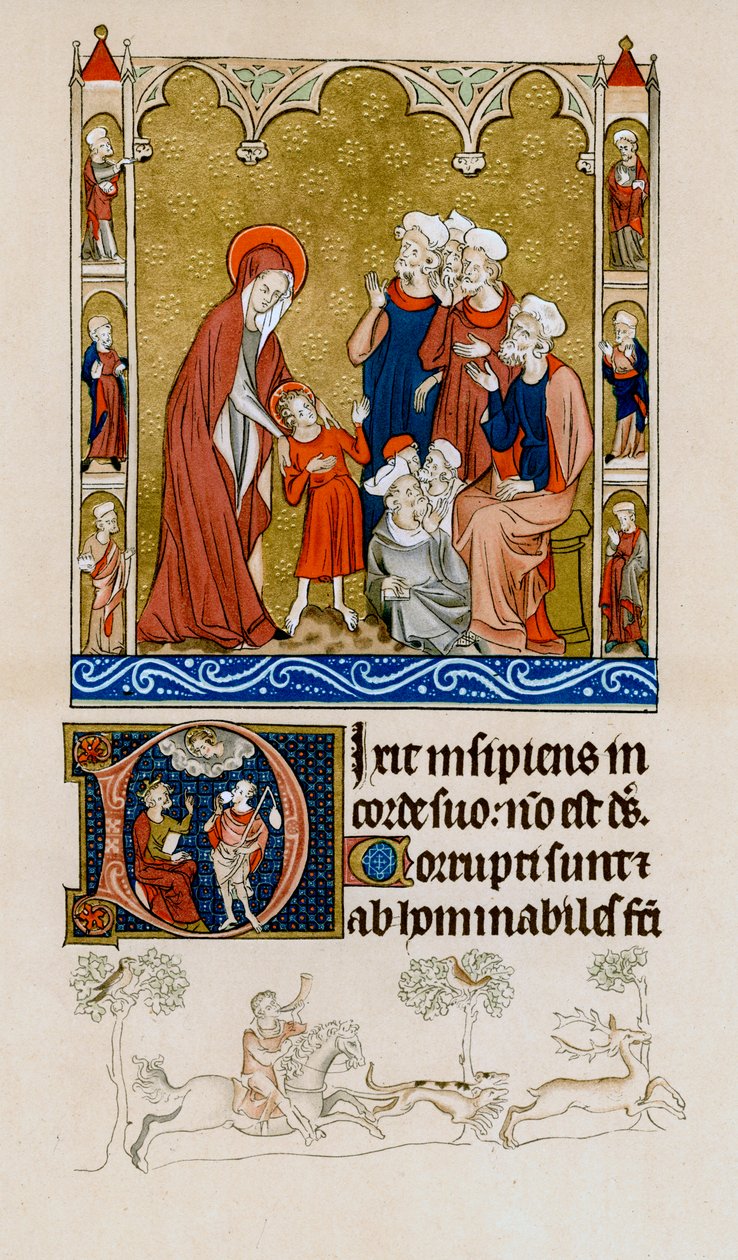 DIxit insipiens in
corde suo: nō est ds̄.
Corrupti sunt ⁊
abhominabiles fc̄i